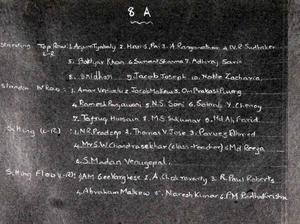 8 A
Standing Top Row: 1. Arjun Tyabaly 2. Hari S. Pai 3. A Ranganathan 4. V.R Sudhakar
L-R
5. Bakhtyar Khan 6. Sumeet Sharma 7. Adhiraj Sarin
8. Sridhar 9. Jacob Joseph 10. Mathe Zacharia
Row: 1. Amar 2. Jacob Mathew 3. Om Prakash
4. Ramesh 5. N.S. Soni 6. Satish Y. Shenoy
7. Tafruq Hussain 8. M.S. Sukumar 9. Md Ali Farid
Sitting (L-R): 1. N.R Pradeep 2. Thomas V Jose 3. Parvez Ahmed
4. Mr S.W Chandrasekhar (class-teacher) 4. Md Reeja
5. S. Madan Venugopal
Sitting Floor (L-R): 1. AM Gee Varghese 2. A. Chakravarty 3. R. Paul Roberts
4. Abraham Mathew 5. Naresh Kumar 6. PM Radhakrishna